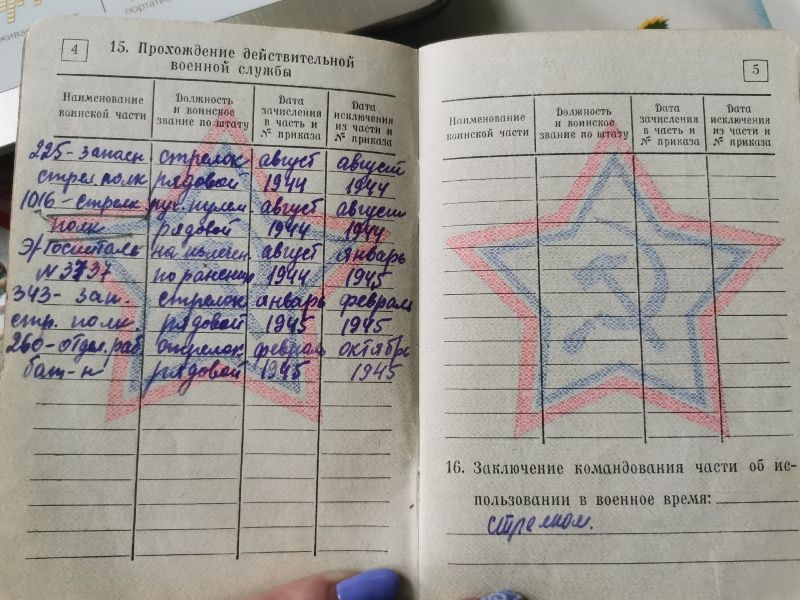 портатив
4
15. Прохождение действительной
военной службы
Наименование
воинской части
Должность
и воинское
звание по штату
Дата
зачисления
в часть и
№ приказа
Дата
исключения
из части и
№ приказа
225- запасн стрелок август август
стрел полк рядовой 1944 1944
1016 - стрелк руч. пулем август август
полк рядовой 1944 1944
Э/Госпиталь на излечен август январь
N 3737 по ранению 1944 1945
343- зап. стрелок январь февраль
стр. полк. рядовой 1945 1945
260-отдел. раб стрелок февраль октябрь
бат-н рядовой 1945 1945
5
Наименование
воинской части
Должность
и воинское
звание по штату
Дата
зачисления
в часть и
№ приказа
Дата
исключения
из части и
№ приказа
16. Заключение командования части об ис-
пользовании в военное время:
стрелком.